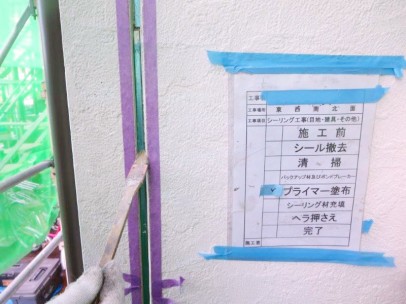 工事名
工事場所 東 西 南 北 面
工事種別 シーリング工事(目地・建具・その他)
施 工 前
シール撤去
清　掃
バックアップ材及びボンドブレーカー
プライマー塗布
シーリング材充填
ヘラ押さえ
完了
施工業